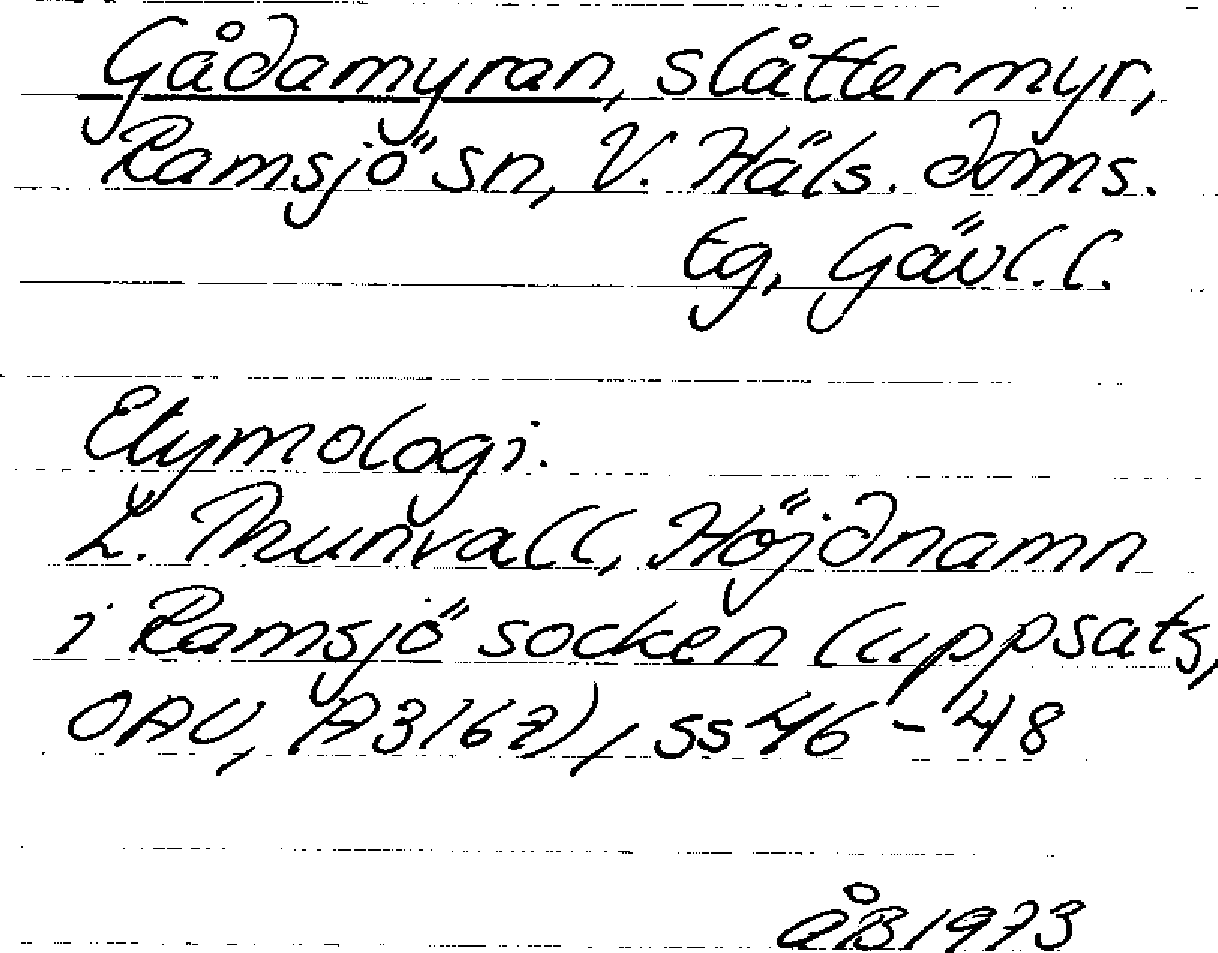 Gådamyran, slåttermyr,
Ramsjö sn, V. Häls. doms.
tg, Gävl.l.
Etymologi.
L. Thunvall, Höjdnamn
i Ramsjö socken (uppsats,
OAU, A3167), ss 46-48
ÅB 1973